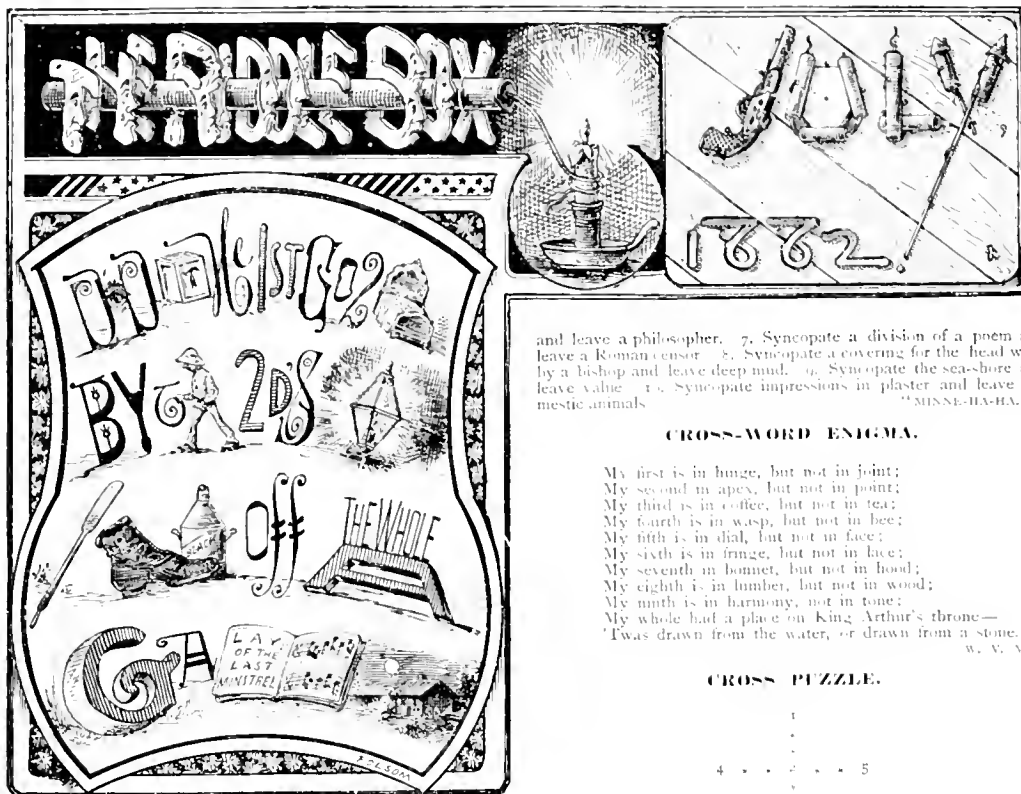 THE RIDDLE BOX
JULY
1882
1ST
BY 2D'S
OFF THE WHOLE
G A
LAY
OF THE
LAST
MINSTREL
FOLSOM
and leave a philosopher. 7. Syncopate a division of a poem
leave a Roman censor 8. Syncopate a covering for the head
by a bishop and leave deep mud. 9. Syncopate the sea-shore
leave value 10. Syncopate impressions in plaster and leave
mestic animals "MINNE-HA-HA.
CROSS-WORD ENIGMA.
My first is in hinge, but not in joint;
My second in apex, but not in point;
My third is in coffee, but not in tea;
My fourth is in wasp, but not in bee;
My fifth is in dial, but not in face;
My sixth is in fringe, but not in lace;
My seventh in bonnet, but not in hood;
My eighth is in lumber, but not in wood;
My ninth is in harmony, not in tone;
My whole had a place on King Arthur's throne—
'Twas drawn from the water, or drawn from a stone.
W. V.
CROSS PUZZLE.
1
4 * * 2 * * 5